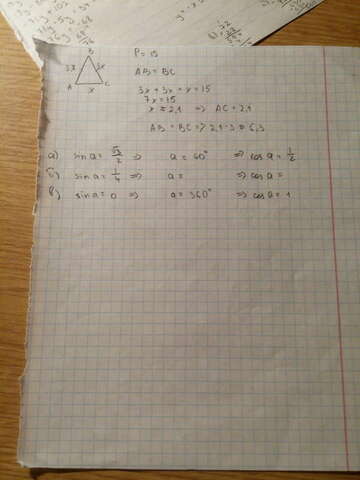 B
P = 15
3x 3x
AB = BC
A C
x
3x + 3x + x = 15
7x = 15
x ≈ 2,1 => AC = 2,1
AB = BC => 2,1 · 3 ≈ 6,3
а) sin a = √3/2 => a = 60° => cos a = 1/2
б) sin a = 1/4 => a = => cos a =
в) sin a = 0 => a = 360° => cos a = 1